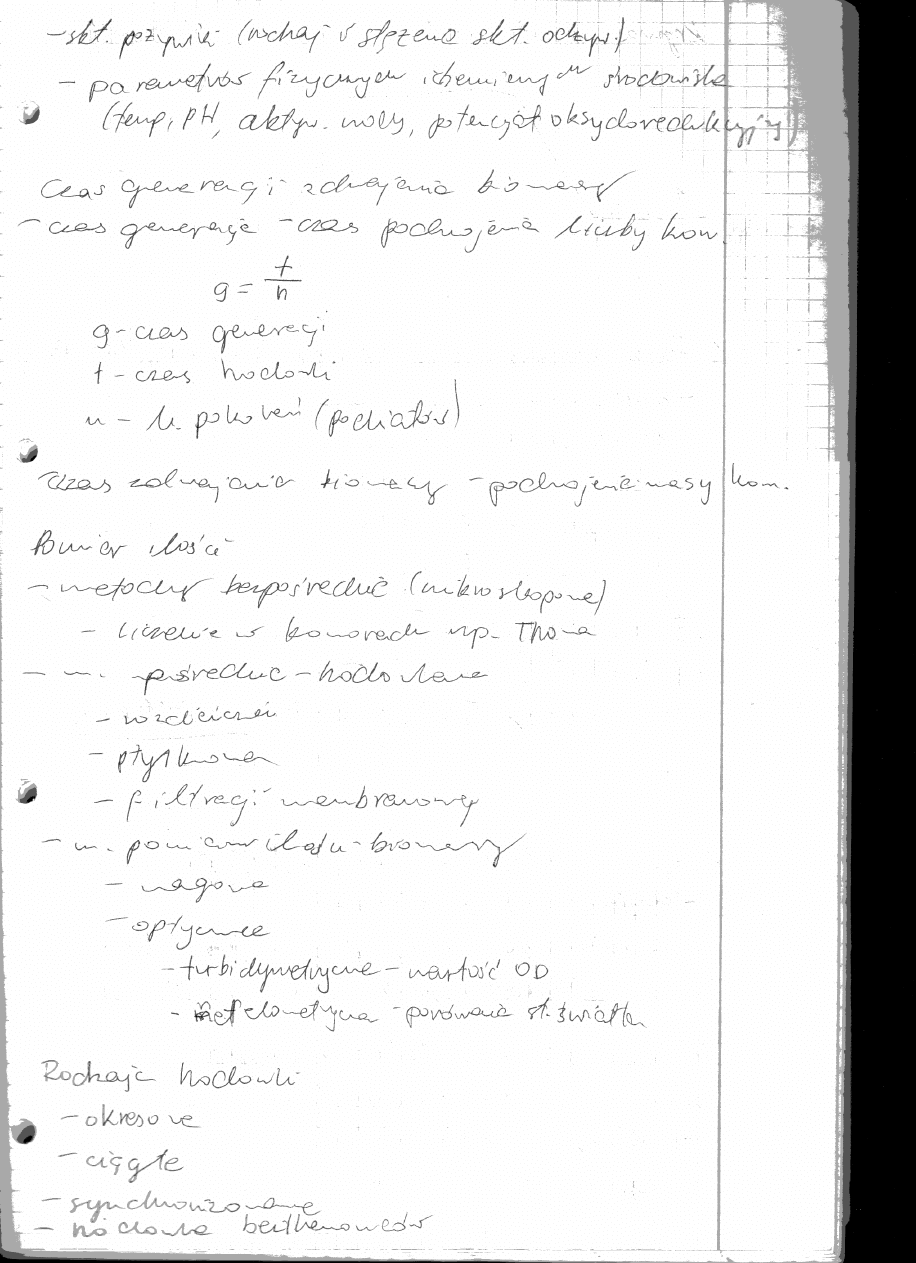 - skł. pożywki (rodzaj i stężenie skł. odżyw.)
- parametrów fizycznych i chemicznych środowiska
(temp, pH, aktyw. wody, potencjał oksydoredukcyjny)
Czas generacji i zdwajania biomasy
- czas generacji - czas podwojenia liczby kom.
g = t/n
g - czas generacji
t - czas hodowli
n - l. pokoleń (podziałów)
Czas zdwajania biomasy - podwojenie masy kom.
Pomiar ilości
- metody bezpośrednie (mikroskopowe)
- liczenie w komorach np. Thoma
- m. pośrednie - hodowlane
- rozcieńczeń
- płytkowa
- filtracji membranowej
- m. pomiaru ilości biomasy
- wagowe
- optyczne
- turbidymetryczne - wartość OD
- nefelometryczna - porównanie św. światła
Rodzaje hodowli
- okresowe
- ciągłe
- synchronizowane
- hodowla beztlenowców